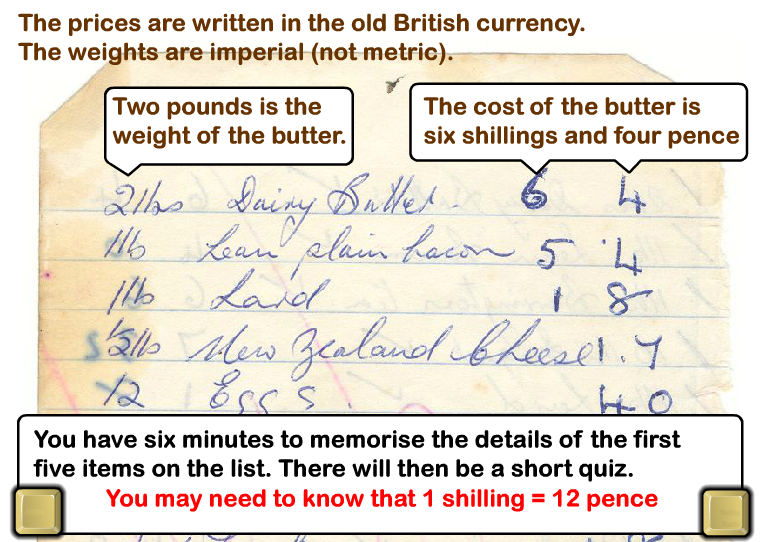 The prices are written in the old British currency.
The weights are imperial (not metric).
Two pounds is the
weight of the butter.
The cost of the butter is
six shillings and four pence
2lbs Dairy Butter 6 4
1lb Lean plain bacon 5 4
1lb Lard 1 8
1/2lb New Zealand Cheese 1.7
12 Eggs. 4 0
You have six minutes to memorise the details of the first
five items on the list. There will then be a short quiz.
You may need to know that 1 shilling = 12 pence